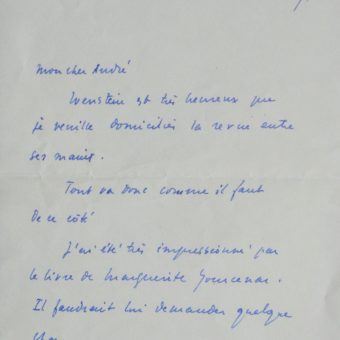 Mon cher André
Evenstein est très heureux que
je veuille domicilier la revue entre
ses mains.
Tout va donc comme il faut
De ce côté
J'ai été très impressionné par
le livre de Marguerite Yourcenar.
Il faudrait lui demander quelque